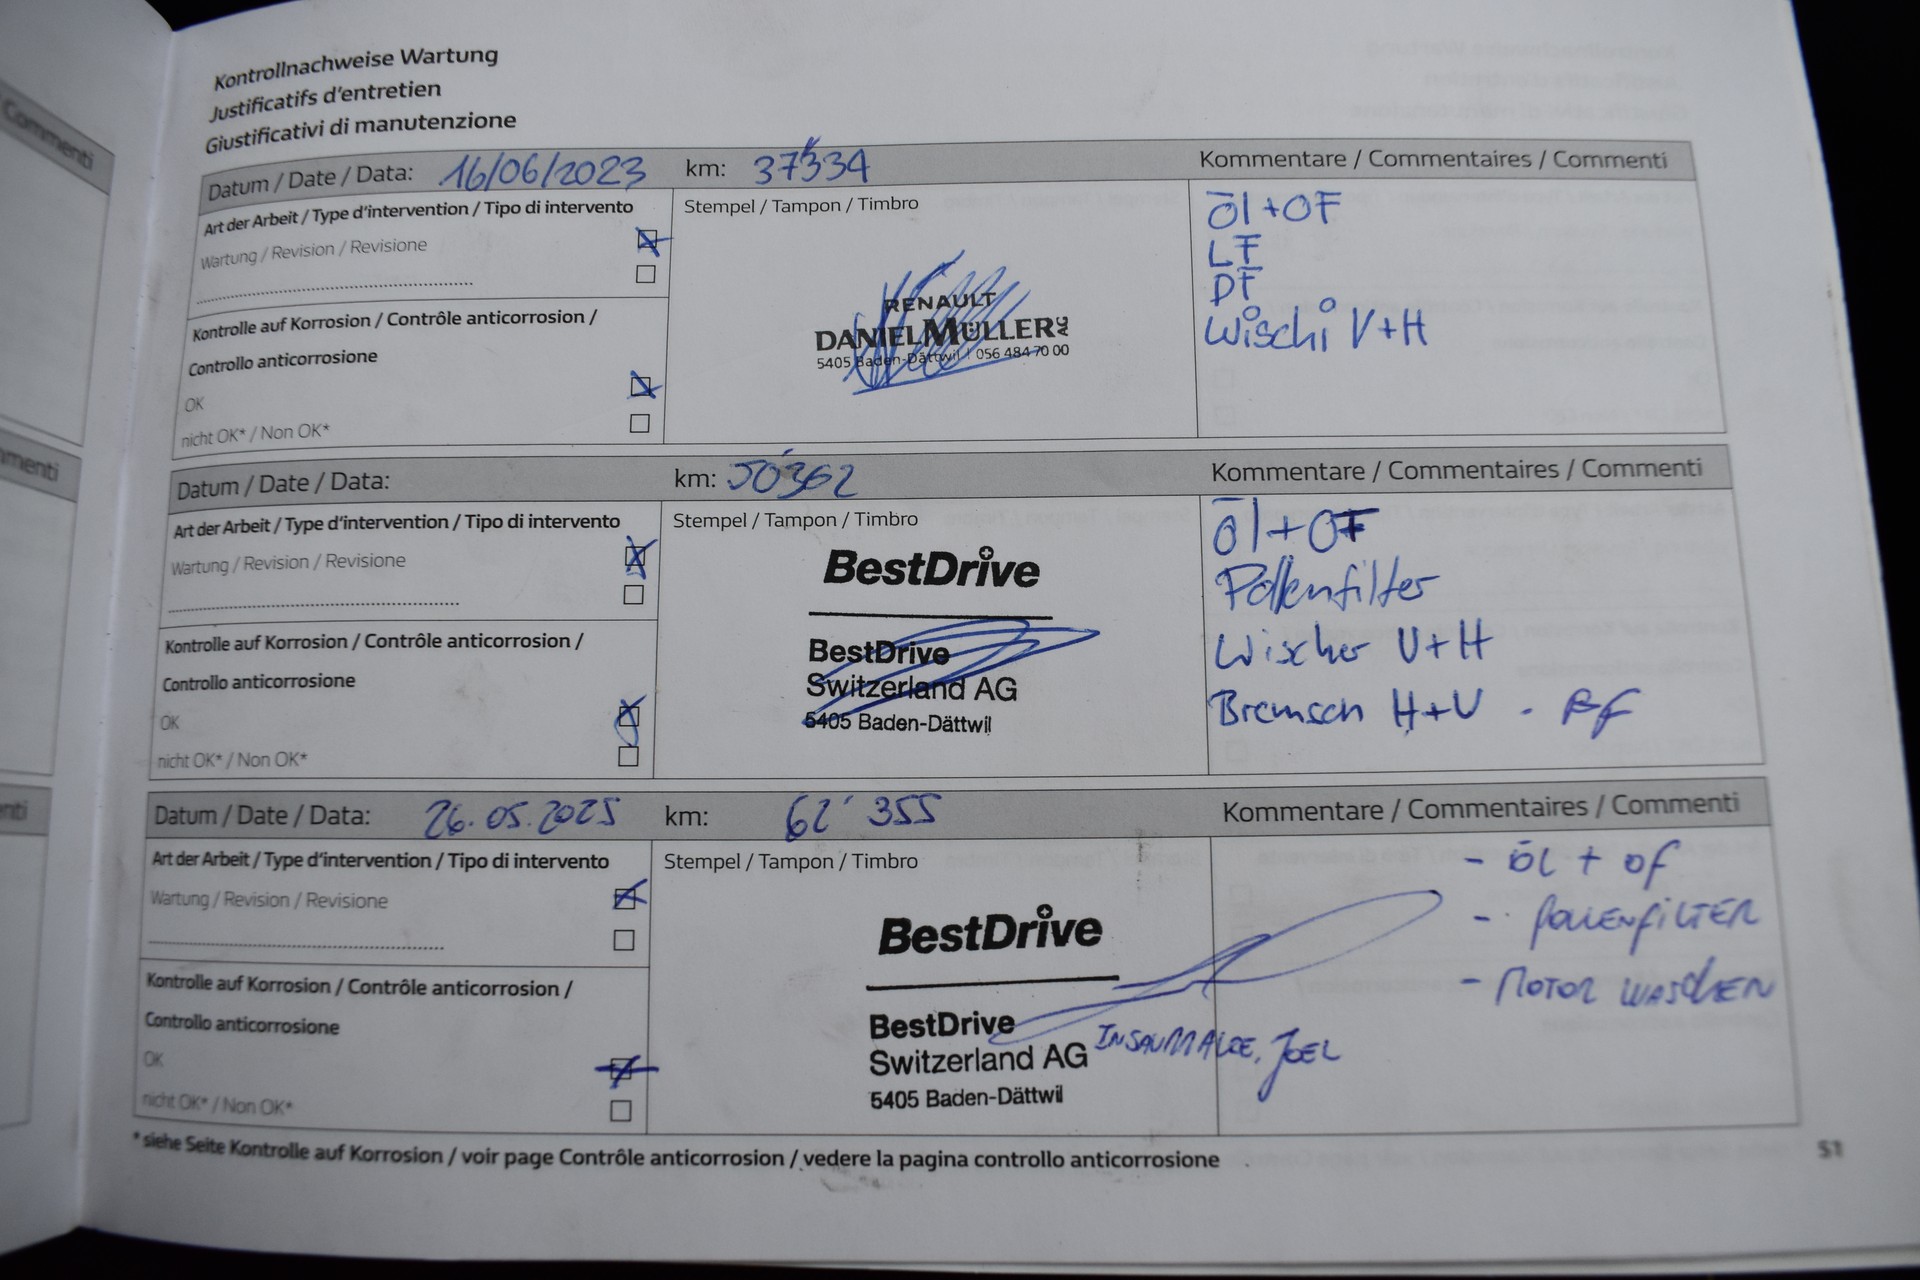 Commenti
mmenti
nti
Kontrollnachweise Wartung
Justificatifs d'entretien
Giustificativi di manutenzione
Datum / Date / Data: 16/06/2023 km: 37'334 Kommentare / Commentaires / Commenti
Art der Arbeit / Type d'intervention / Tipo di intervento
Wartung / Revision / Revisione
Kontrolle auf Korrosion / Contrôle anticorrosion /
Controllo anticorrosione
OK
nicht OK* / Non OK*
Stempel / Tampon / Timbro
RENAULT
DANIEL MÜLLER AG
5405 Baden-Dättwil | 056 484 70 00
Öl + OF
LF
DF
Wischi V+H
Datum / Date / Data: km: 50'362 Kommentare / Commentaires / Commenti
Art der Arbeit / Type d'intervention / Tipo di intervento
Wartung / Revision / Revisione
Kontrolle auf Korrosion / Contrôle anticorrosion /
Controllo anticorrosione
OK
nicht OK* / Non OK*
Stempel / Tampon / Timbro
BestDrive
BestDrive
Switzerland AG
5405 Baden-Dättwil
Öl + OF
Pollenfilter
Wischer V+H
Bremsen H+V - BF
Datum / Date / Data: 26.05.2025 km: 62'355 Kommentare / Commentaires / Commenti
Art der Arbeit / Type d'intervention / Tipo di intervento
Wartung / Revision / Revisione
Kontrolle auf Korrosion / Contrôle anticorrosion /
Controllo anticorrosione
OK
nicht OK* / Non OK*
Stempel / Tampon / Timbro
BestDrive
BestDrive
Switzerland AG
5405 Baden-Dättwil
JOEL
- ÖL + OF
- POLLENFILTER
- MOTOR WASCHEN
* siehe Seite Kontrolle auf Korrosion / voir page Contrôle anticorrosion / vedere la pagina controllo anticorrosione
51